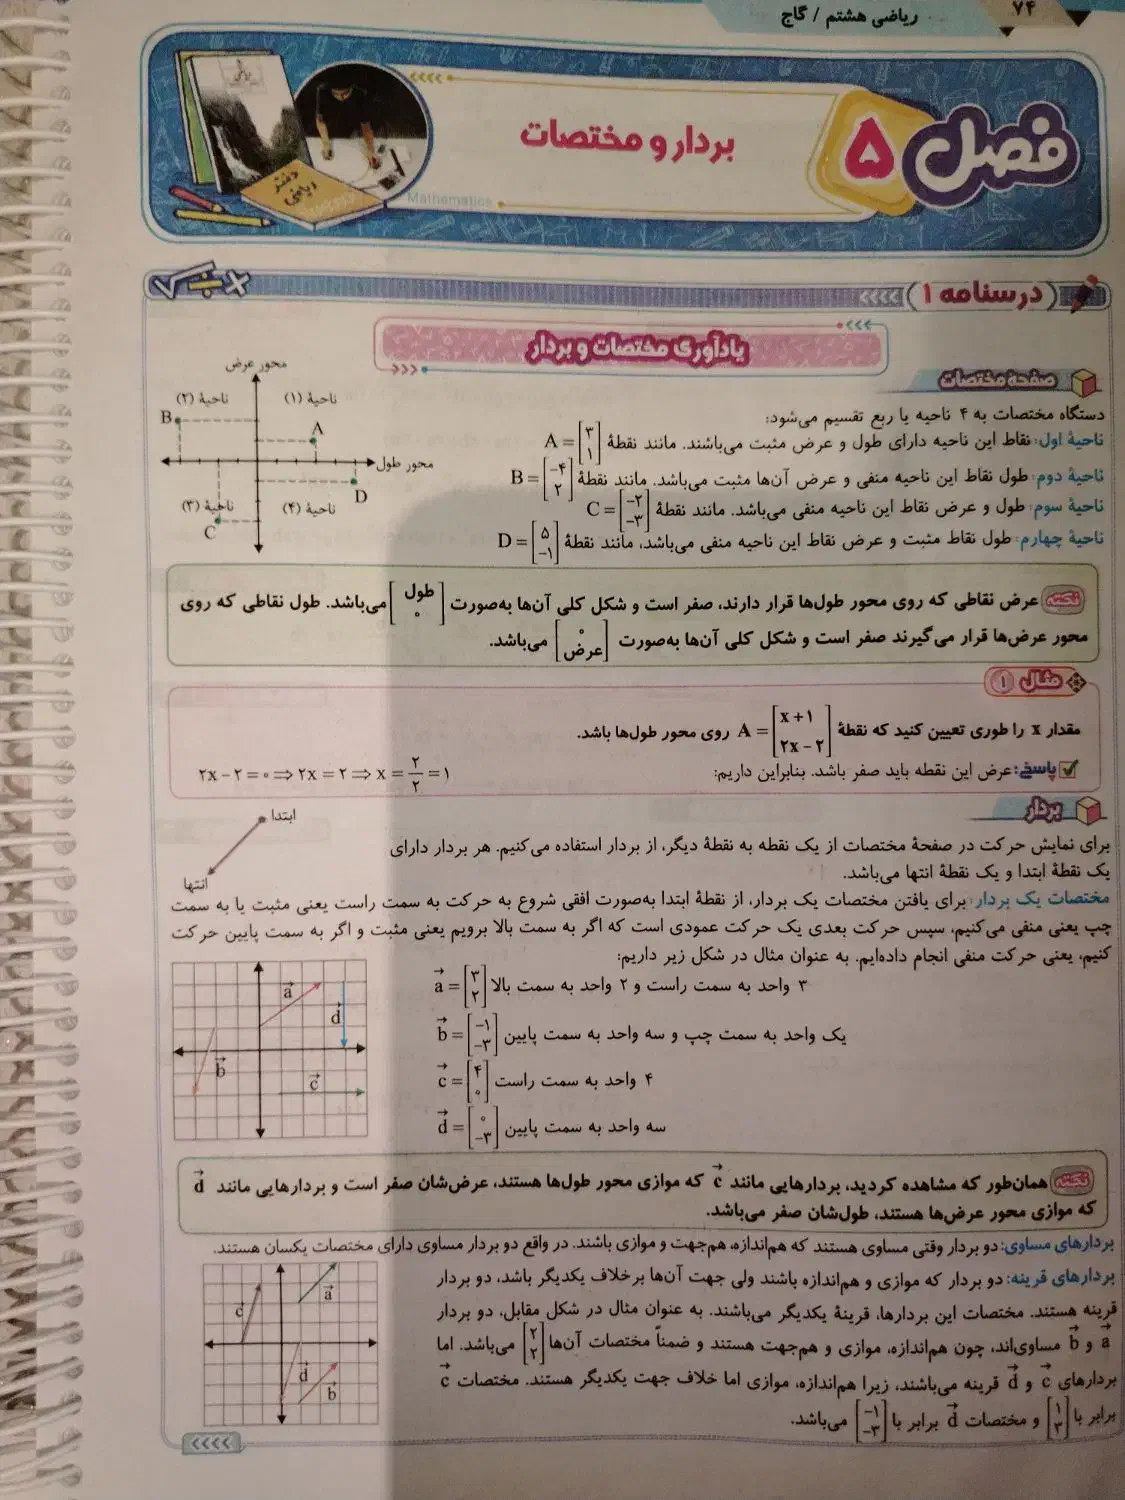 ریاضی هشتم / گاج
۷۴
فصل ۵
بردار و مختصات
Mathematics
دفتر ریاضی
درسنامه ۱
یادآوری مختصات و بردار
صفحهٔ مختصات
دستگاه مختصات به ۴ ناحیه یا ربع تقسیم می‌شود:
ناحیهٔ اول: نقاط این ناحیه دارای طول و عرض مثبت می‌باشند. مانند نقطهٔ A = [۳ ۱]
ناحیهٔ دوم: طول نقاط این ناحیه منفی و عرض آن‌ها مثبت می‌باشد. مانند نقطهٔ B = [−۴ ۲]
ناحیهٔ سوم: طول و عرض نقاط این ناحیه منفی می‌باشد. مانند نقطهٔ C = [−۲ −۳]
ناحیهٔ چهارم: طول نقاط مثبت و عرض نقاط این ناحیه منفی می‌باشد، مانند نقطهٔ D = [۵ −۱]
محور عرض
ناحیهٔ (۲)
ناحیهٔ (۱)
B
A
محور طول
D
ناحیهٔ (۳)
ناحیهٔ (۴)
C
نکته عرض نقاطی که روی محور طول‌ها قرار دارند، صفر است و شکل کلی آن‌ها به‌صورت [طول ۰] می‌باشد. طول نقاطی که روی
محور عرض‌ها قرار می‌گیرند صفر است و شکل کلی آن‌ها به‌صورت [۰ عرض] می‌باشد.
مثال ۱
مقدار x را طوری تعیین کنید که نقطهٔ A = [x+۱ ۲x−۲] روی محور طول‌ها باشد.
پاسخ: عرض این نقطه باید صفر باشد. بنابراین داریم: ۲x−۲=۰ ⇒ ۲x=۲ ⇒ x=۲/۲=۱
بردار
ابتدا
انتها
برای نمایش حرکت در صفحهٔ مختصات از یک نقطه به نقطهٔ دیگر، از بردار استفاده می‌کنیم. هر بردار دارای
یک نقطهٔ ابتدا و یک نقطهٔ انتها می‌باشد.
مختصات یک بردار: برای یافتن مختصات یک بردار، از نقطهٔ ابتدا به‌صورت افقی شروع به حرکت به سمت راست یعنی مثبت یا به سمت
چپ یعنی منفی می‌کنیم، سپس حرکت بعدی یک حرکت عمودی است که اگر به سمت بالا برویم یعنی مثبت و اگر به سمت پایین حرکت
کنیم، یعنی حرکت منفی انجام داده‌ایم. به عنوان مثال در شکل زیر داریم:
۳ واحد به سمت راست و ۲ واحد به سمت بالا a⃗ = [۳ ۲]
یک واحد به سمت چپ و سه واحد به سمت پایین b⃗ = [−۱ −۳]
۴ واحد به سمت راست c⃗ = [۴ ۰]
سه واحد به سمت پایین d⃗ = [۰ −۳]
a⃗
d⃗
b⃗
c⃗
نکته همان‌طور که مشاهده کردید، بردارهایی مانند c⃗ که موازی محور طول‌ها هستند، عرض‌شان صفر است و بردارهایی مانند d⃗
که موازی محور عرض‌ها هستند، طول‌شان صفر می‌باشد.
بردارهای مساوی: دو بردار وقتی مساوی هستند که هم‌اندازه، هم‌جهت و موازی باشند. در واقع دو بردار مساوی دارای مختصات یکسان هستند.
بردارهای قرینه: دو بردار که موازی و هم‌اندازه باشند ولی جهت آن‌ها برخلاف یکدیگر باشد، دو بردار
قرینه هستند. مختصات این بردارها، قرینهٔ یکدیگر می‌باشند. به عنوان مثال در شکل مقابل، دو بردار
a⃗ و b⃗ مساوی‌اند، چون هم‌اندازه، موازی و هم‌جهت هستند و ضمناً مختصات آن‌ها [۲ ۲] می‌باشد. اما
بردارهای c⃗ و d⃗ قرینه می‌باشند، زیرا هم‌اندازه، موازی اما خلاف جهت یکدیگر هستند. مختصات c⃗
برابر با [۱ ۳] و مختصات d⃗ برابر با [−۱ −۳] می‌باشد.
c⃗
a⃗
d⃗
b⃗